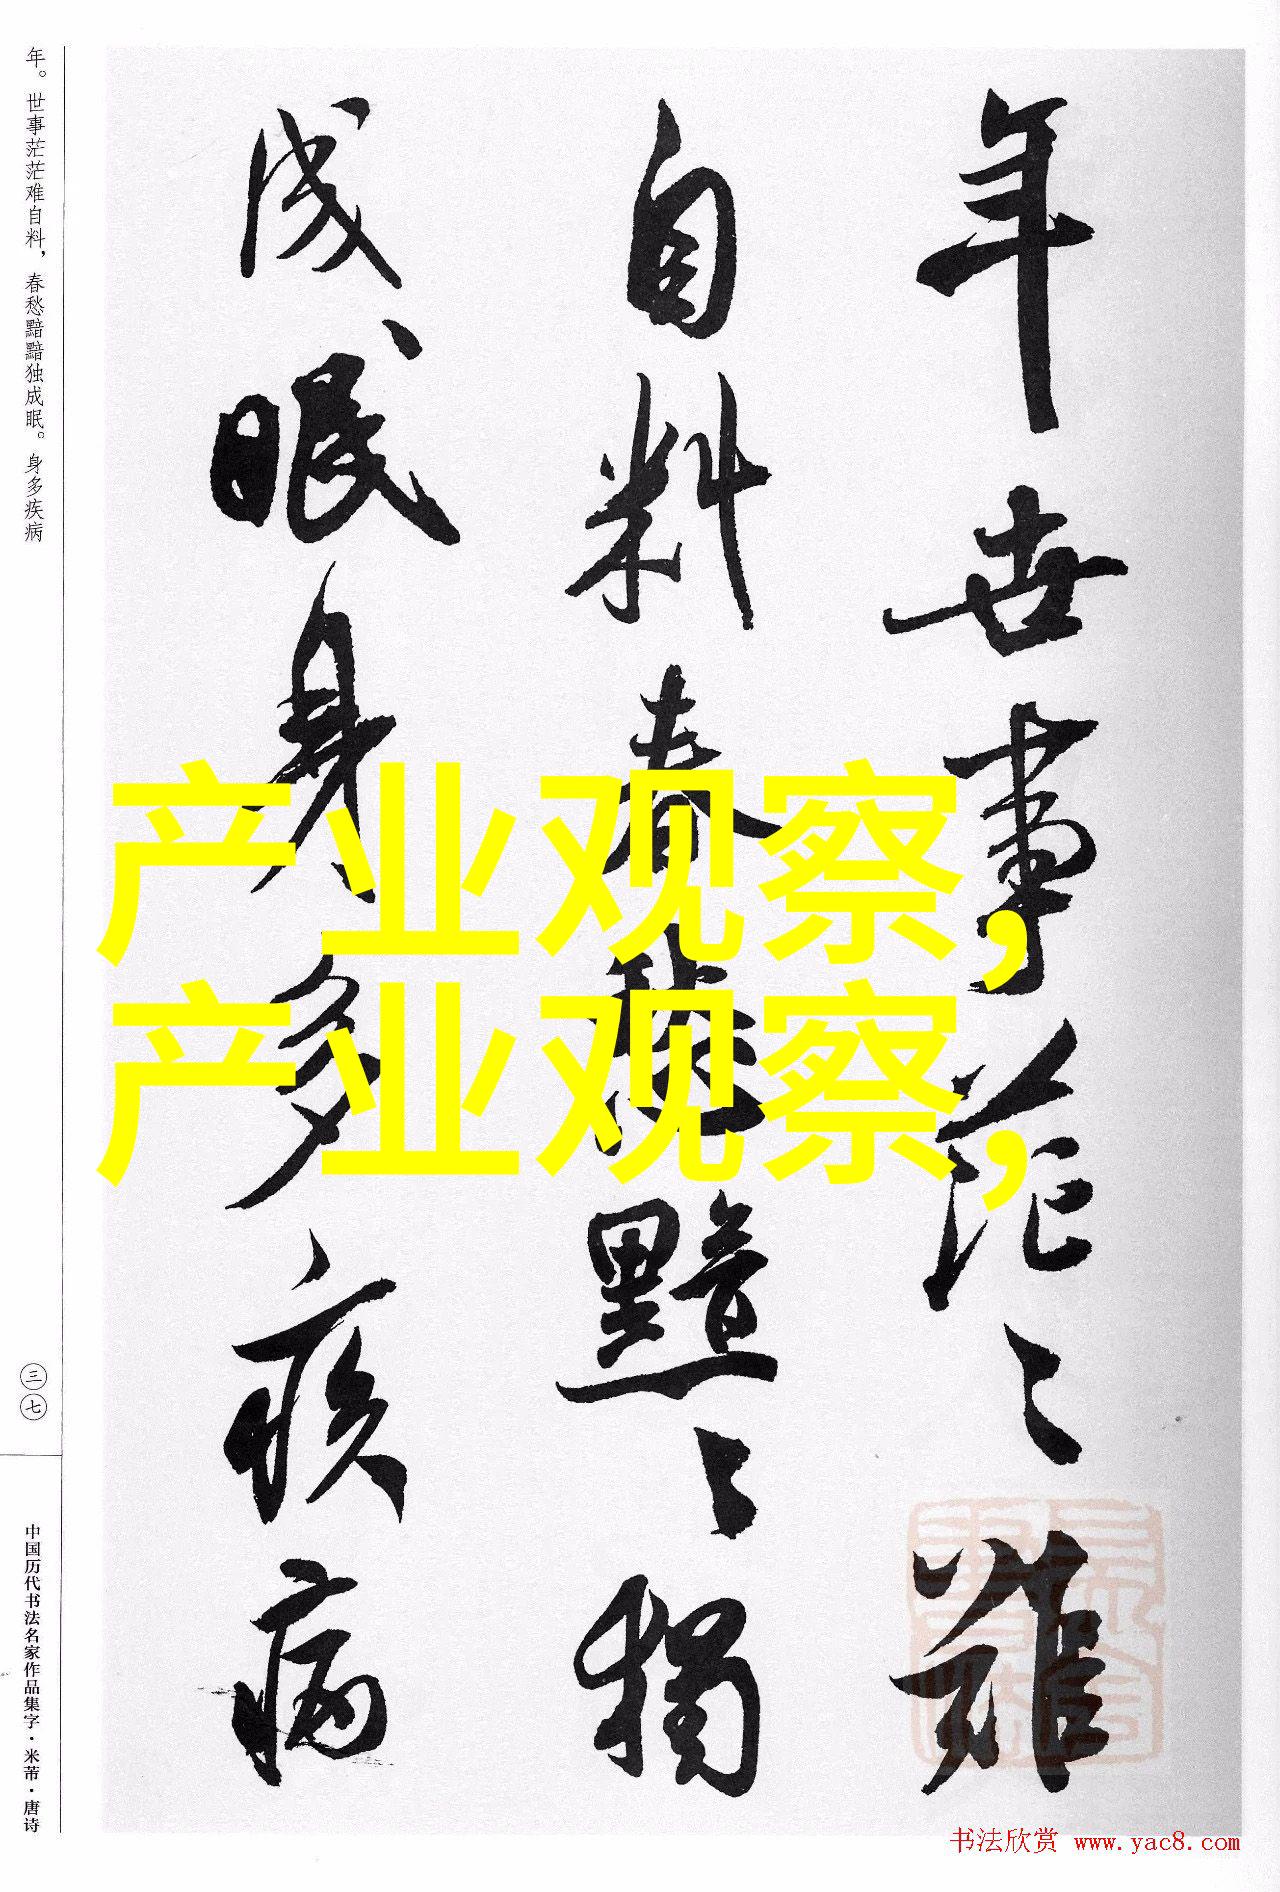 年世事茫〻難
自料春愁黯〻獨
成眠身多疾病
产业观察,
产业观察,
年。世事茫茫难自料，春愁黯黯独成眠。身多疾病
三七
中国历代书法名家作品集字·米芾·唐诗
书法欣赏 www.yac8.com